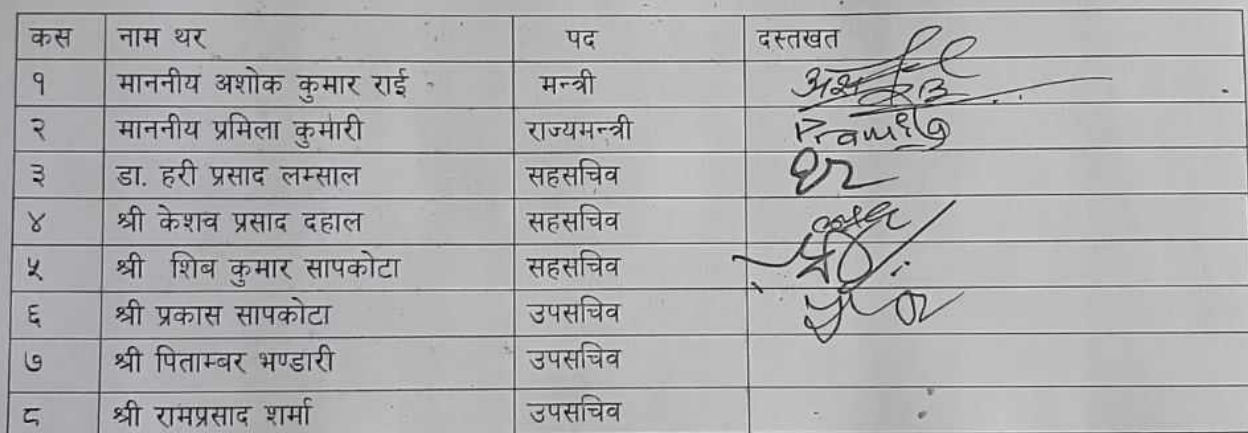 कस नाम थर पद दस्तखत
१ माननीय अशोक कुमार राई मन्त्री
२ माननीय प्रमिला कुमारी राज्यमन्त्री
३ डा. हरी प्रसाद लम्साल सहसचिव
४ श्री केशव प्रसाद दहाल सहसचिव
५ श्री शिब कुमार सापकोटा सहसचिव
६ श्री प्रकास सापकोटा उपसचिव
७ श्री पिताम्बर भण्डारी उपसचिव
८ श्री रामप्रसाद शर्मा उपसचिव